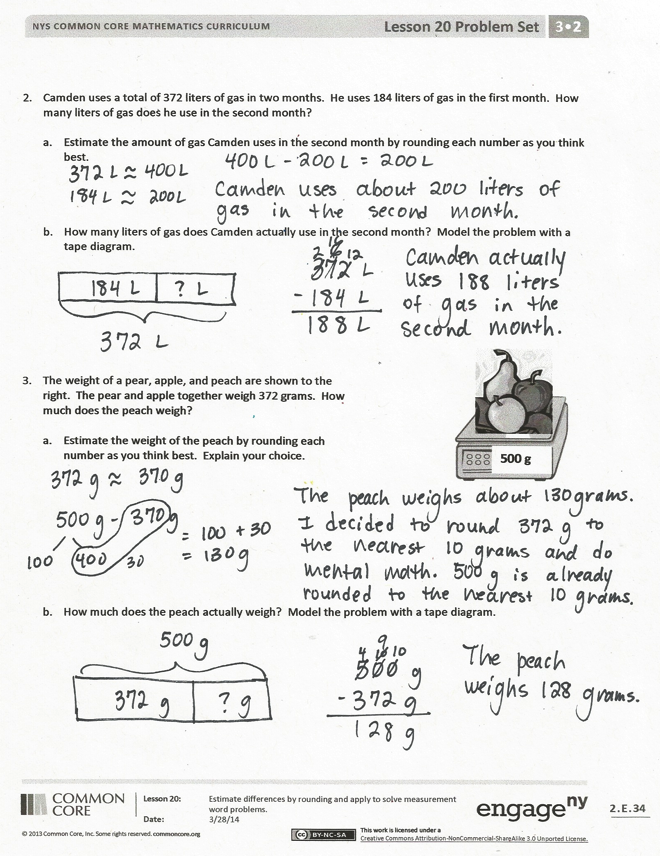 NYS COMMON CORE MATHEMATICS CURRICULUM
Lesson 20 Problem Set 3•2
2. Camden uses a total of 372 liters of gas in two months. He uses 184 liters of gas in the first month. How
many liters of gas does he use in the second month?
a. Estimate the amount of gas Camden uses in the second month by rounding each number as you think
best.
372 L ≈ 400 L
184 L ≈ 200 L
400 L - 200 L = 200 L
Camden uses about 200 liters of
gas in the second month.
b. How many liters of gas does Camden actually use in the second month? Model the problem with a
tape diagram.
184 L ? L
372 L
16
2 6 12
372 L
- 184 L
188 L
Camden actually
uses 188 liters
of gas in the
second month.
3. The weight of a pear, apple, and peach are shown to the
right. The pear and apple together weigh 372 grams. How
much does the peach weigh?
500 g
a. Estimate the weight of the peach by rounding each
number as you think best. Explain your choice.
372 g ≈ 370 g
500 g - 370 g
100 400 30
= 100 + 30
= 130 g
The peach weighs about 130 grams.
I decided to round 372 g to
the nearest 10 grams and do
mental math. 500 g is already
rounded to the nearest 10 grams.
b. How much does the peach actually weigh? Model the problem with a tape diagram.
500 g
372 g ? g
9
4 10 10
500 g
- 372 g
128 g
The peach
weighs 128 grams.
COMMON
CORE
Lesson 20: Estimate differences by rounding and apply to solve measurement
word problems.
Date: 3/28/14
engage ny
2.E.34
© 2013 Common Core, Inc. Some rights reserved. commoncore.org
cc BY-NC-SA
This work is licensed under a
Creative Commons Attribution-NonCommercial-ShareAlike 3.0 Unported License.